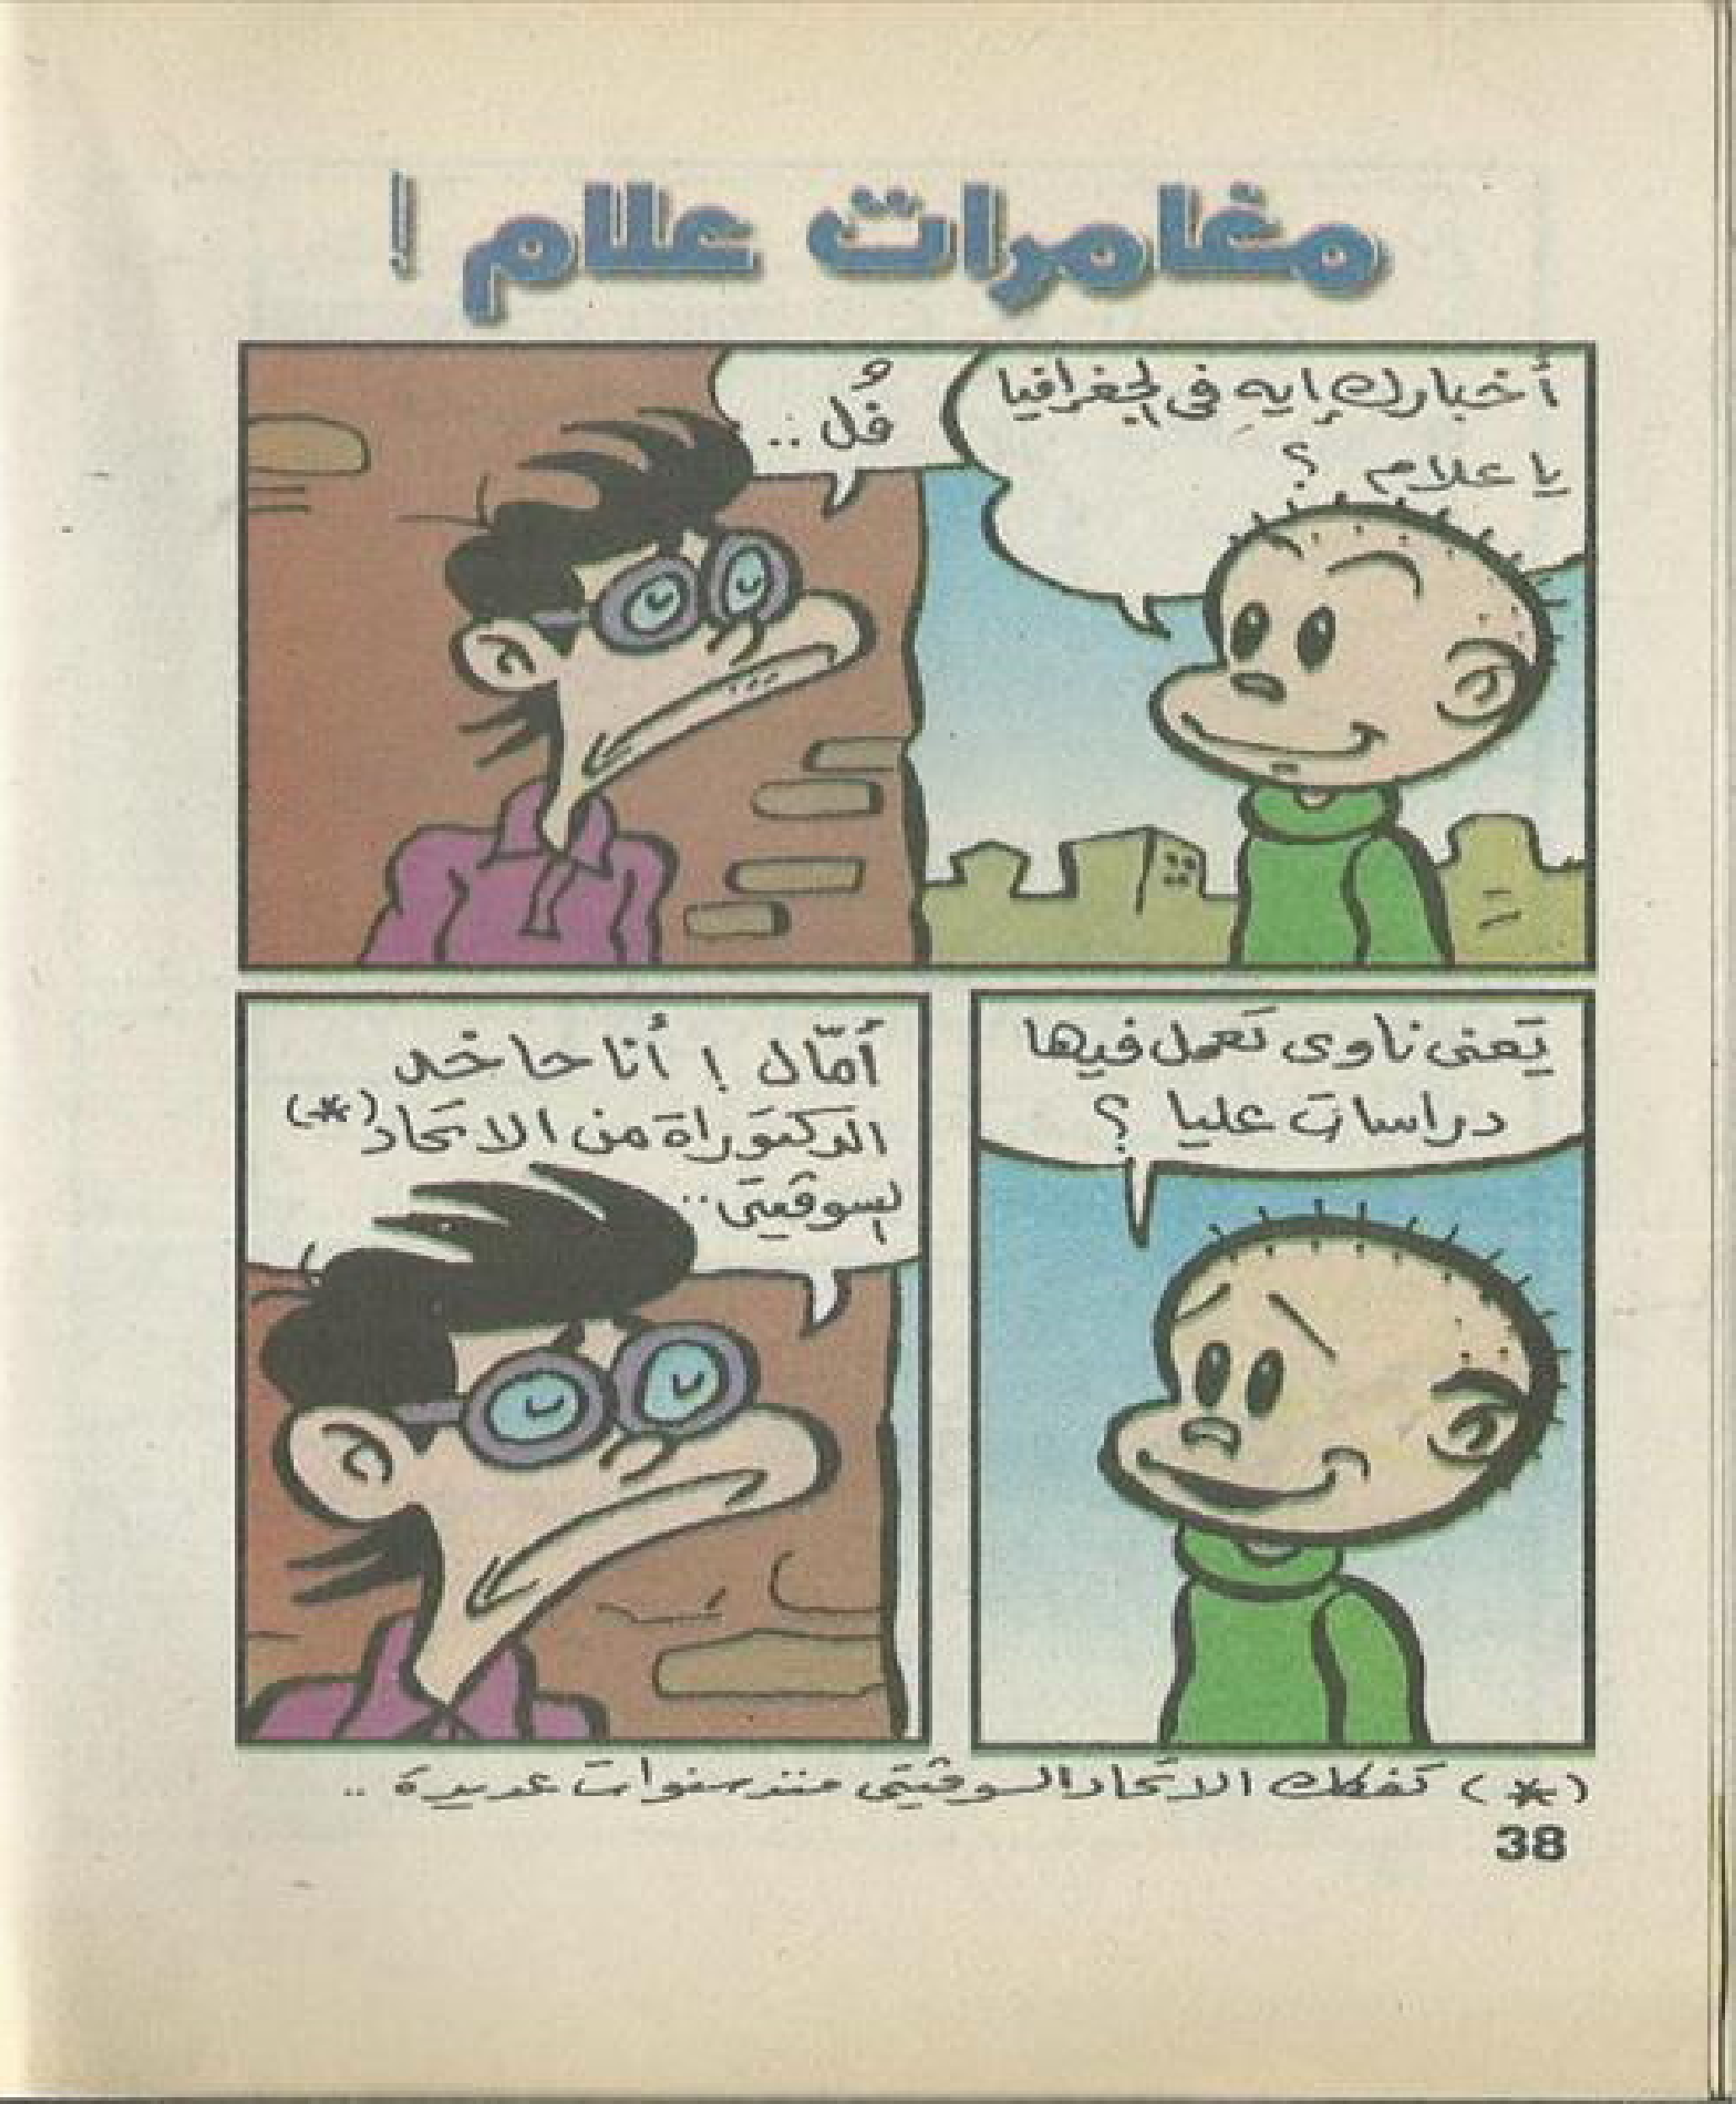 مغامرات علام !
أخبارك إيه في الجغرافيا
يا علام ؟
فُل ..
يَعنى ناوى تَعمل فيها
دراسات عليا ؟
أمّال ! أنا حاخد
الدكتوراة من الاتحاد (*)
السوڤيتى ..
(*) تفكك الاتحاد السوڤيتى منذ سنوات عديدة ..
38